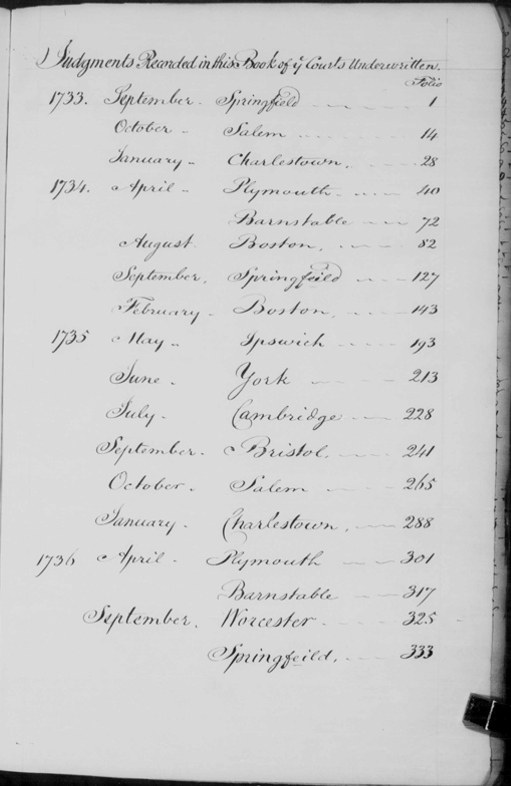 Judgments Recorded in this Book of ye Courts Underwritten.
Folio
1733. September. Springfield 1
October Salem 14
January Charlestown. 28
1734. April Plymouth 40
Barnstable 72
August Boston, 82
September, Springfeild 127
February Boston, 143
1735 May Ipswich 193
June York 213
July Cambridge 228
September Bristol. 241
October Salem 265
January Charlestown, 288
1736 April Plymouth 301
Barnstable 317
September, Worcester 325
Springfeild, 333